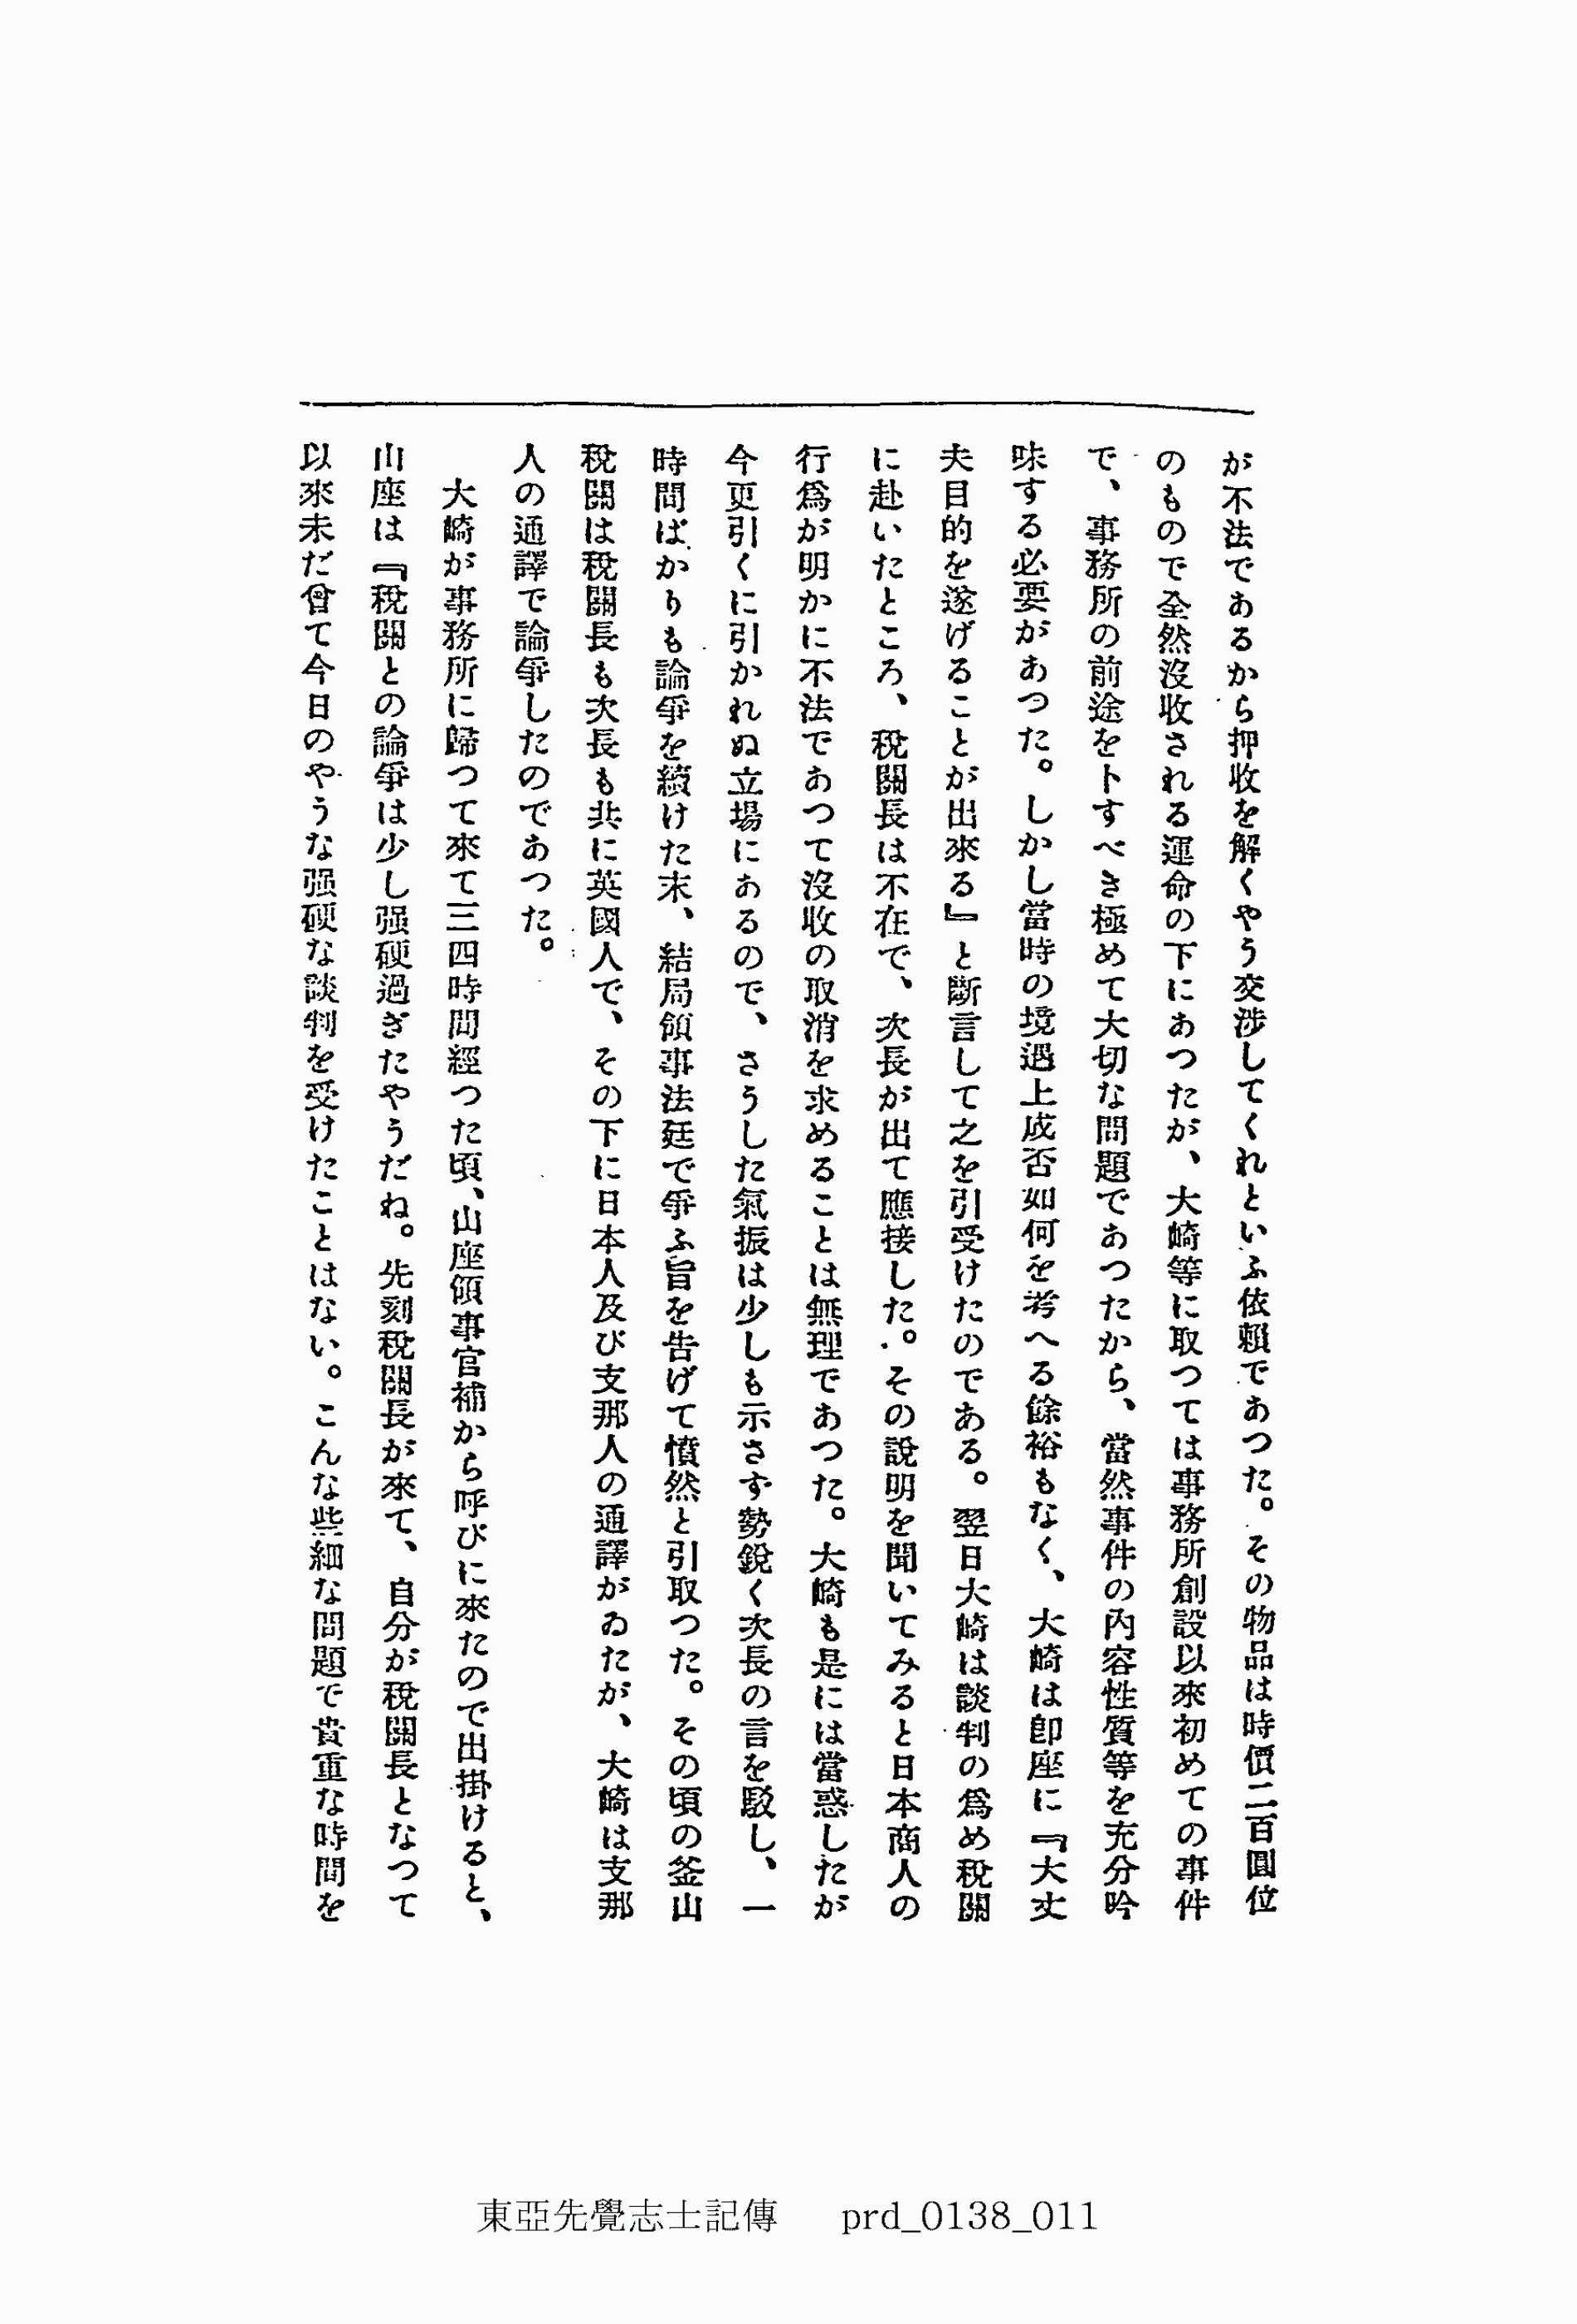 が不法であるから押收を解くやう交渉してくれといふ依賴であつた。その物品は時價二百圓位
のもので全然沒收される運命の下にあつたが、大崎等に取つては事務所創設以來初めての事件
で、事務所の前途を卜すべき極めて大切な問題であつたから、當然事件の內容性質等を充分吟
味する必要があつた。しかし當時の境遇上成否如何を考へる餘裕もなく、大崎は卽座に『大丈
夫目的を遂げることが出來る』と斷言して之を引受けたのである。翌日大崎は談判の爲め稅關
に赴いたところ、稅關長は不在で、次長が出て應接した。その說明を聞いてみると日本商人の
行爲が明かに不法であつて沒收の取消を求めることは無理であつた。大崎も是には當惑したが
今更引くに引かれぬ立場にあるので、さうした氣振は少しも示さず勢銳く次長の言を駁し、一
時間ばかりも論爭を續けた末、結局領事法廷で爭ふ旨を告げて憤然と引取つた。その頃の釜山
稅關は稅關長も次長も共に英國人で、その下に日本人及び支那人の通譯がゐたが、大崎は支那
人の通譯で論爭したのであつた。
大崎が事務所に歸つて來て三四時間經つた頃、山座領事官補から呼びに來たので出掛けると、
山座は『稅關との論爭は少し强硬過ぎたやうだね。先刻稅關長が來て、自分が稅關長となつて
以來未だ曾て今日のやうな强硬な談判を受けたことはない。こんな些細な問題で貴重な時間を
東亞先覺志士記傳 prd_0138_011